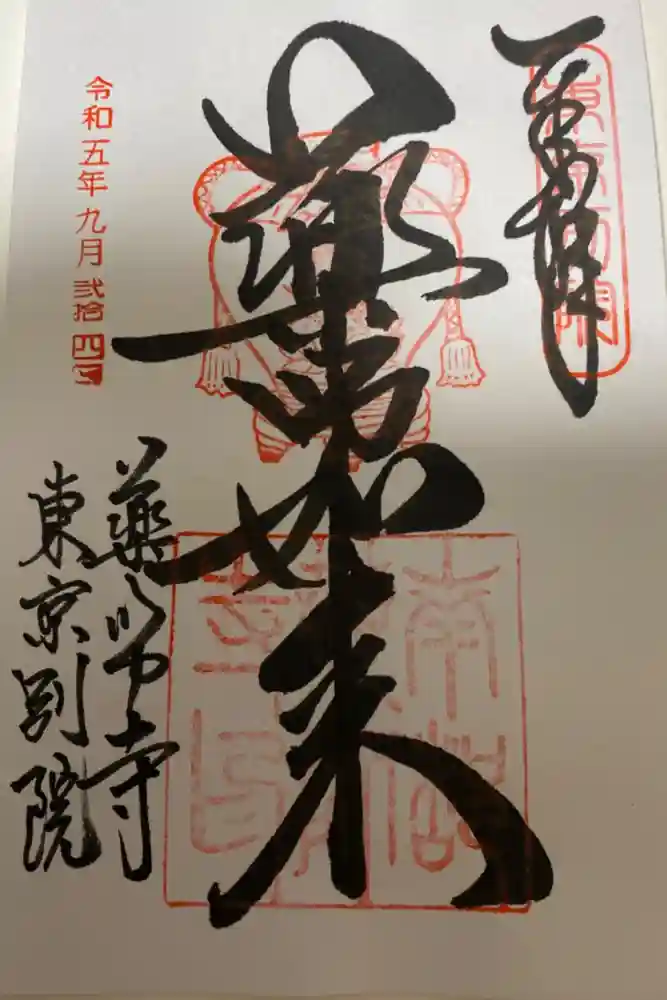 奉拝
薬師如来
令和五年九月弐拾四日
薬師寺
東京別院